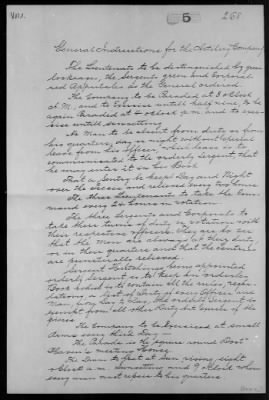 VIII.
5
268
General Instructions for the Artillery Company
The Lieutenants to be distinguished by green
cockcases, the Sergents green and Corporals
red Eppauletes as the General ordered.
The Company to be Paraded at 5 o'Clock
A.M, and to Exercise until half nine, to be
again Paraded at 4 o'Clock p.m and to exer-
cise until sunsetting
No Man to be absent from duty or from
his quarters, day or night without especial
leave from his officer, which leave is to
communicated to the orderly Sergent, that
he may enter it in his Book.
That a Sentry be keept Day and Night
over the and relieved every two hours
The three Lieutenants to take the Com-
mand every 24 hours in rotation
The three Sergents and Corporals to
take there turns of duty in rotation with
their respective officers. They are to see
that the Men are always at their duty,
or in their quarters and that the Sentries
are punctually relieved.
Sergent being appointed
orderly Sergent is to keep an orderly
Book which is to contain all the orders, regu-
lations, a list of Duty of every Officer and
Man, every day & Day, the orderly Sergent is
exempt from all other Duty but Exercise of the
pieces.
The Company to be exercised at small
Arms every third Day
The Parade is the square round Doct
meeting house.
The Drum to beat at Sun rising, eight
o'clock a.m. Sunsetting and 9 o'Clock when
every man must repair to his quarters.